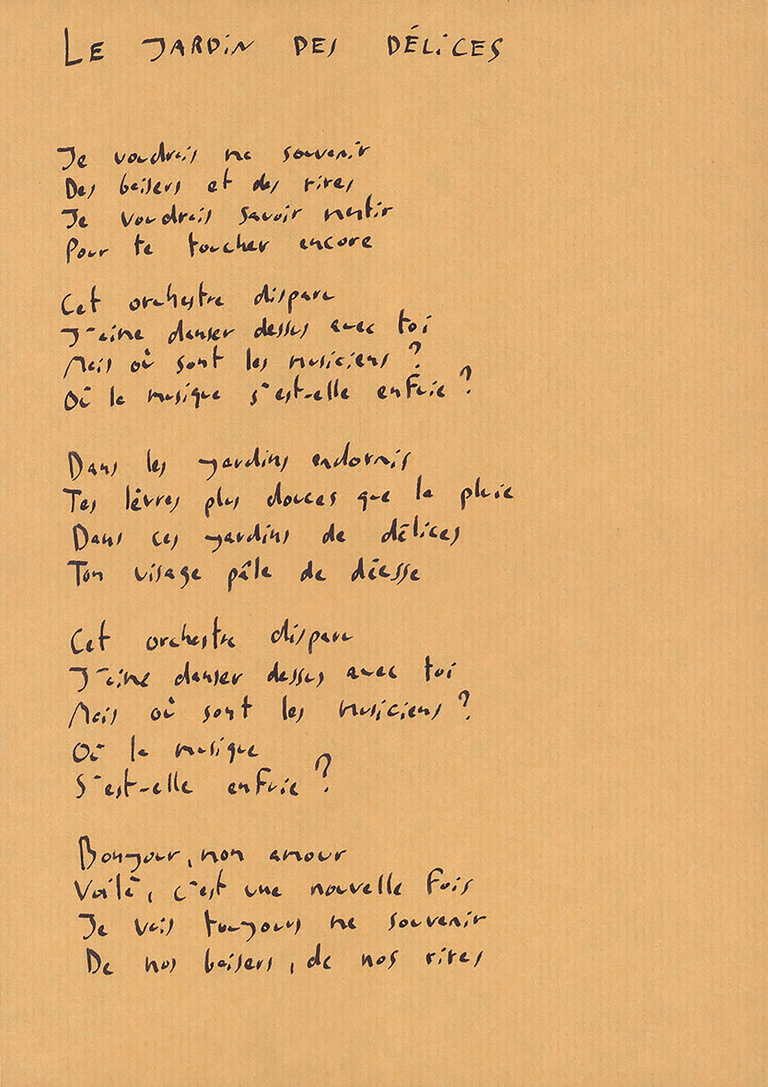 LE JARDIN DES DÉLICES
Je voudrais me souvenir
Des baisers et des rires
Je voudrais savoir mentir
Pour te toucher encore
Cet orchestre disparu
J'aime danser dessus avec toi
Mais où sont les musiciens ?
Où la musique s'est-elle enfuie ?
Dans les jardins endormis
Tes lèvres plus douces que la pluie
Dans ces jardins de délices
Ton visage pâle de déesse
Cet orchestre disparu
J'aime danser dessus avec toi
Mais où sont les musiciens ?
Où la musique
S'est-elle enfuie ?
Bonjour, mon amour
Voilà, c'est une nouvelle fois
Je vais toujours me souvenir
De nos baisers, de nos rires